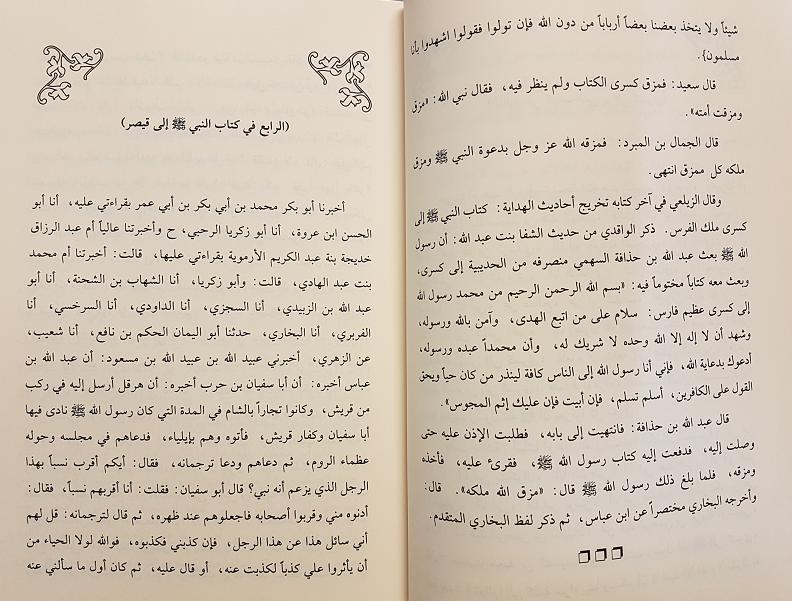 شيئاً ولا يتخذ بعضنا بعضاً أرباباً من دون الله فإن تولوا فقولوا اشهدوا بأنا
مسلمون}.
قال سعيد: فمزق كسرى الكتاب ولم ينظر فيه، فقال نبي الله: «مزق
ومزقت أمته».
قال الجمال بن المبرد: فمزقه الله عز وجل بدعوة النبي ﷺ ومزق
ملكه كل ممزق انتهى.
وقال الزيلعي في آخر كتابه تخريج أحاديث الهداية: كتاب النبي ﷺ إلى
كسرى ملك الفرس. ذكر الواقدي من حديث الشفا بنت عبد الله: أن رسول
الله ﷺ بعث عبد الله بن حذافة السهمي منصرفه من الحديبية إلى كسرى،
وبعث معه كتاباً مختوماً فيه: «بسم الله الرحمن الرحيم من محمد رسول الله
إلى كسرى عظيم فارس: سلام على من اتبع الهدى، وآمن بالله ورسوله،
وشهد أن لا إله إلا الله وحده لا شريك له، وأن محمداً عبده ورسوله،
أدعوك بدعاية الله، فإني أنا رسول الله إلى الناس كافة لينذر من كان حياً ويحق
القول على الكافرين، أسلم تسلم، فإن أبيت فإن عليك إثم المجوس».
قال عبد الله بن حذافة: فانتهيت إلى بابه، فطلبت الإذن عليه حتى
وصلت إليه، فدفعت إليه كتاب رسول الله ﷺ، فقرئ عليه، فأخذه
ومزقه، فلما بلغ ذلك رسول الله ﷺ قال: «مزق الله ملكه». قال:
وأخرجه البخاري مختصراً عن ابن عباس، ثم ذكر لفظ البخاري المتقدم.
(الرابع في كتاب النبي ﷺ إلى قيصر)
أخبرنا أبو بكر محمد بن أبي بكر بن أبي عمر بقراءتي عليه، أنا أبو
الحسن ابن عروة، أنا أبو زكريا الرحبي، ح وأخبرتنا عالياً أم عبد الرزاق
خديجة بنة عبد الكريم الأرموية بقراءتي عليها، قالت: أخبرتنا أم محمد
بنت عبد الهادي، قالت: وأبو زكريا، أنا الشهاب بن الشحنة، أنا أبو
عبد الله بن الزبيدي، أنا السجزي، أنا الداودي، أنا السرخسي، أنا
الفربري، أنا البخاري، حدثنا أبو اليمان الحكم بن نافع، أنا شعيب،
عن الزهري، أخبرني عبيد الله بن عبيد الله بن مسعود: أن عبد الله بن
عباس أخبره: أن أبا سفيان بن حرب أخبره: أن هرقل أرسل إليه في ركب
من قريش، وكانوا تجاراً بالشام في المدة التي كان رسول الله ﷺ نادى فيها
أبا سفيان وكفار قريش، فأتوه وهم بإيلياء، فدعاهم في مجلسه وحوله
عظماء الروم، ثم دعاهم ودعا ترجمانه، فقال: أيكم أقرب نسباً بهذا
الرجل الذي يزعم أنه نبي؟ قال أبو سفيان: فقلت: أنا أقربهم نسباً، فقال:
أدنوه مني وقربوا أصحابه فاجعلوهم عند ظهره، ثم قال لترجمانه: قل لهم
أني سائل هذا عن هذا الرجل، فإن كذبني فكذبوه، فوالله لولا الحياء من
أن يأثروا علي كذباً لكذبت عنه، أو قال عليه، ثم كان أول ما سألني عنه